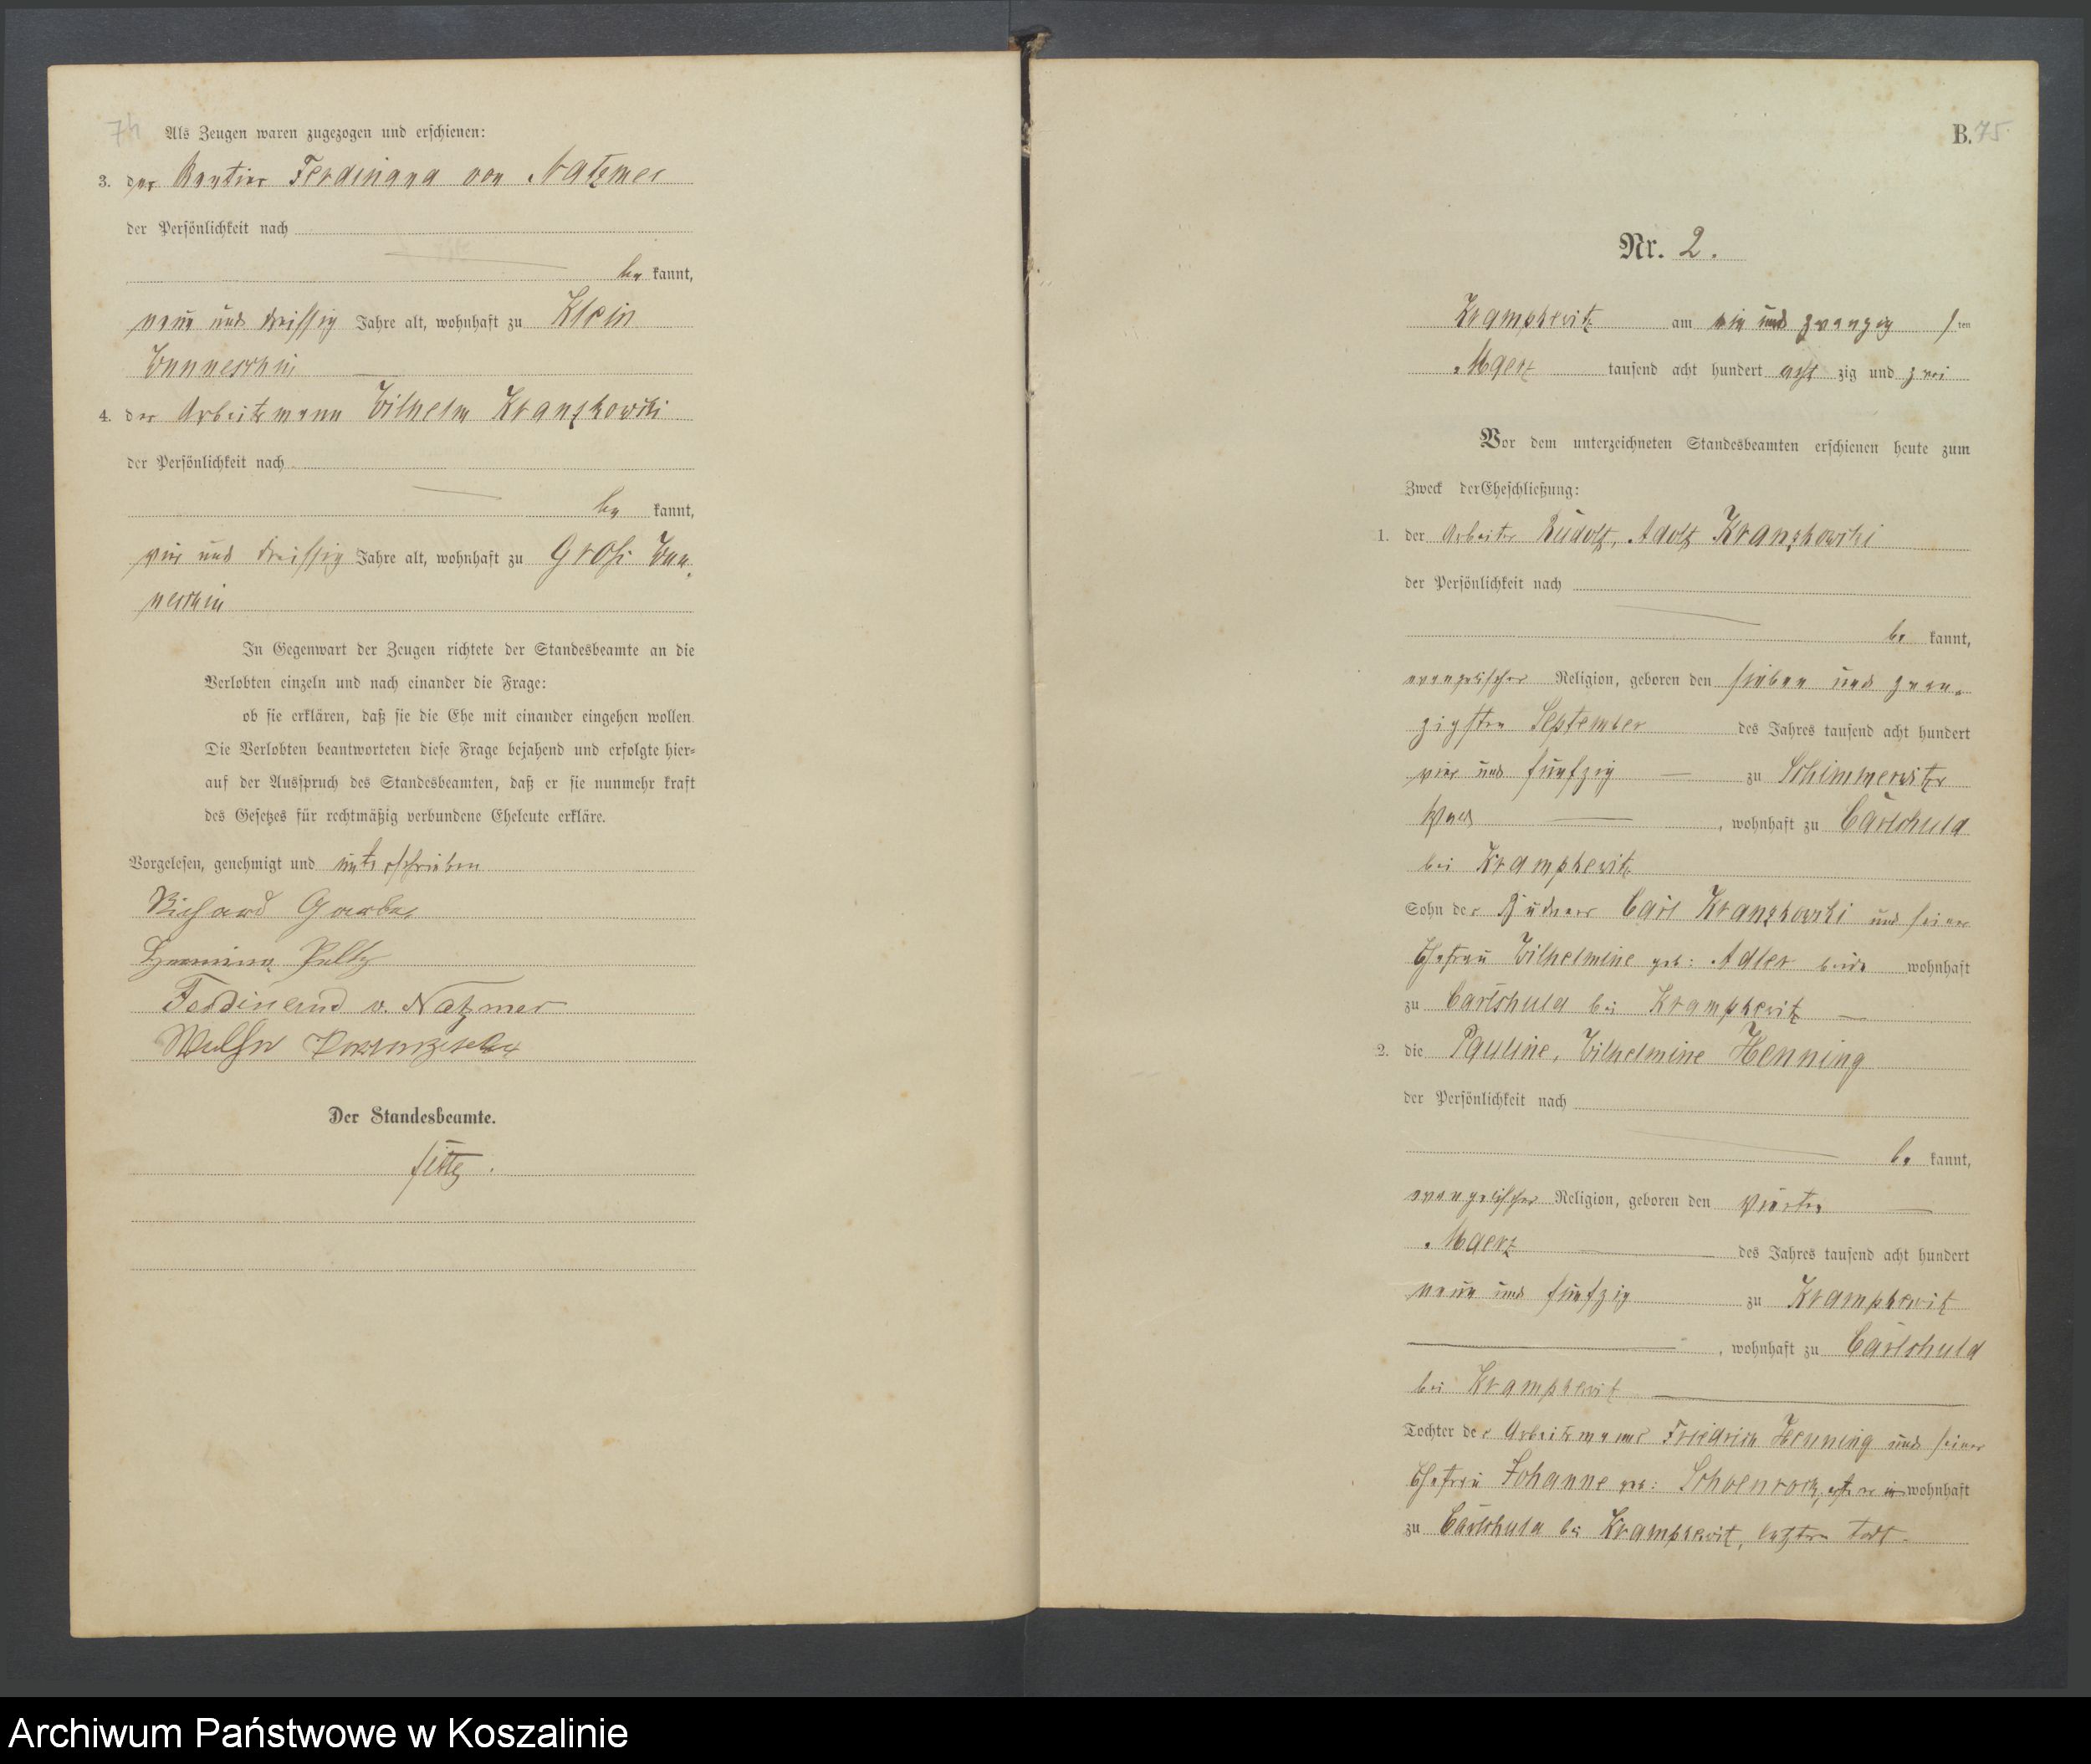 74
Als Zeugen waren zugezogen und erschienen:
3. der Rentier Ferdinand von Natzmer
der Persönlichkeit nach
be kannt,
neun und dreissig Jahre alt, wohnhaft zu Klein
Wunneschin
4. der Arbeitsmann Wilhelm Kranzkowski
der Persönlichkeit nach
be kannt,
vier und dreissig Jahre alt, wohnhaft zu Groß Wun-
neschin
In Gegenwart der Zeugen richtete der Standesbeamte an die
Verlobten einzeln und nach einander die Frage:
ob sie erklären, daß sie die Ehe mit einander eingehen wollen
Die Verlobten beantworteten diese Frage bejahend und erfolgte hier=
auf der Ausspruch des Standesbeamten, daß er sie nunmehr kraft
des Gesetzes für rechtmäßig verbundene Eheleute erkläre.
Vorgelesen, genehmigt und unterschrieben
Richard
Hermine
Ferdinand v. Natzmer
Der Standesbeamte.
B. 75
Nr. 2.
Krampkewitz am ein und zwanzig sten
Maerz tausend acht hundert acht zig und zwei
Vor dem unterzeichneten Standesbeamten erschienen heute zum
Zweck der Eheschließung:
1. der Arbeiter Rudolf, Adolf Kranzkowski
der Persönlichkeit nach
be kannt,
evangelischer Religion, geboren den sieben und zwan-
zigsten September des Jahres tausend acht hundert
vier und fünfzig zu Schimmerwitzer
, wohnhaft zu Carlshuld
bei Krampkewitz
Sohn des Büdners Carl Kranzkowski und seiner
Ehefrau Wilhelmine geb: Adler beide wohnhaft
zu Carlshuld bei Krampkewitz
2. die Pauline, Wilhelmine Henning
der Persönlichkeit nach
be kannt,
evangelischer Religion, geboren den vierten
Maerz des Jahres tausend acht hundert
neun und fünfzig zu Krampkewitz
, wohnhaft zu Carlshuld
bei Krampkewitz
Tochter des Arbeitsmanns Friedrich Henning und seiner
Ehefrau Johanne geb: Schoenrock, wohnhaft
zu Carlshuld bei Krampkewitz, todt
Archiwum Państwowe w Koszalinie